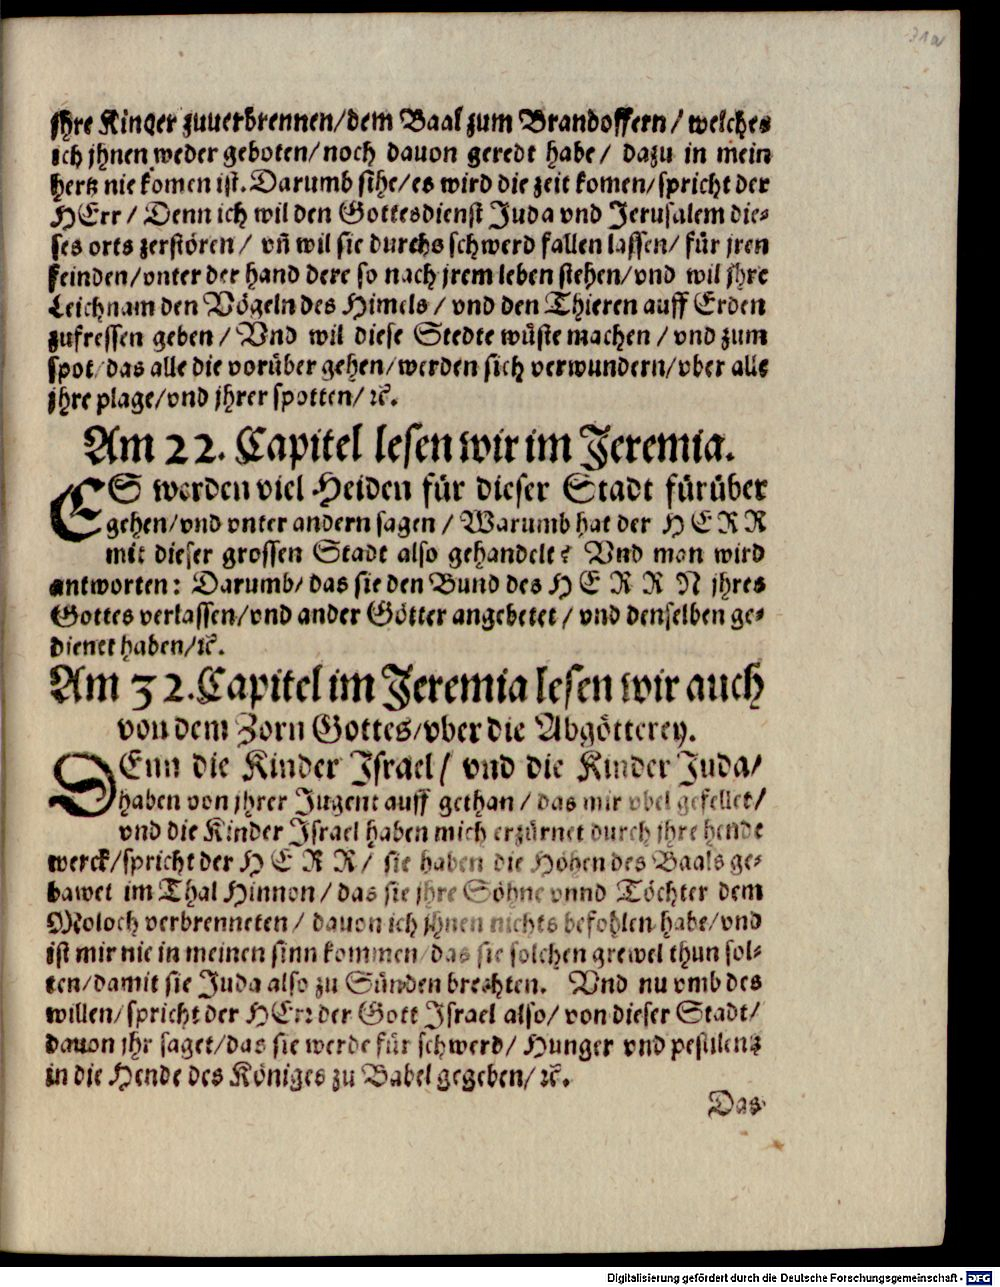 31a
jhre Kinder zuuerbrennen/dem Baal zum Brandopffern/ welches
ich jhnen weder geboten/noch dauon geredt habe/ dazu in mein
hertz nie komen ist. Darumb sihe/es wird die zeit komen/spricht der
HErr/ Denn ich wil den Gottesdienst Juda vnd Jerusalem die-
ses orts zerstören/ vñ wil sie durchs schwerd fallen lassen/ für jren
feinden/vnter der hand dere so nach jrem leben stehen/vnd wil jhre
Leichnam den Vögeln des Himels/ vnd den Thieren auff Erden
zufressen geben/ Vnd wil diese Stedte wüste machen/ vnd zum
spot/das alle die vorüber gehen/werden sich verwundern/vber alle
jhre plage/vnd jhrer spotten/ ꝛc.
Am 22. Capitel lesen wir im Jeremia.
ES werden viel Heiden für dieser Stadt fürüber
gehen/vnd vnter andern sagen/ Warumb hat der HERR
mit dieser grossen Stadt also gehandelt? Vnd man wird
antworten: Darumb/das sie den Bund des HERRN jhres
Gottes verlassen/vnd ander Götter angebetet/ vnd denselben ge-
dienet haben/ꝛc.
Am 32. Capitel im Jeremia lesen wir auch
von dem Zorn Gottes/vber die Abgötterey.
DEnn die Kinder Israel/ vnd die Kinder Juda/
haben von jhrer Jugent auff gethan/ das mir vbel gefellet/
vnd die Kinder Israel haben mich erzürnet durch jhre hende
werck/spricht der HERR/ sie haben die Höhen des Baals ge-
bawet im Thal Hinnon/ das sie jhre Söhne vnnd Töchter dem
Moloch verbrenneten/ dauon ich jhnen nichts befohlen habe/vnd
ist mir nie in meinen sinn kommen/das sie solchen grewel thun sol-
ten/damit sie Juda also zu Sünden brechten. Vnd nu vmb des
willen/spricht der HErr der Gott Israel also/ von dieser Stadt/
dauon jhr saget/das sie werde für schwerd/ Hunger vnd pestilentz
in die Hende des Königes zu Babel gegeben/ ꝛc.
Das
Digitalisierung gefördert durch die Deutsche Forschungsgemeinschaft - DFG